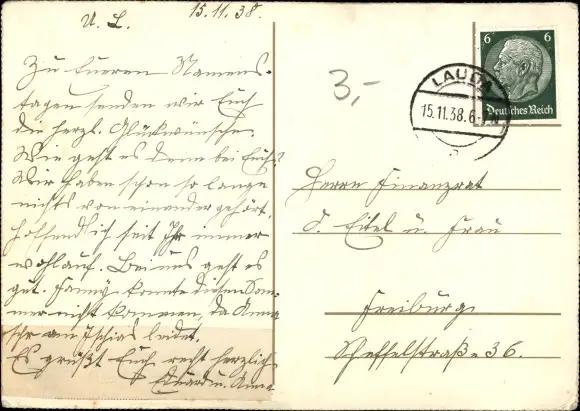 U. L.
15.11.38.
Zu Eueren Namens-
tagen senden wir Euch
die herzl. Glückwünsche.
Wie geht es denn bei Euch?
Wir haben schon so lange
nichts von einander gehört,
hoffendlich seit Ihr immer
wohlauf. Bei uns geht es
gut. Fanny konnte diesen Som-
mer nicht kommen, da Anna
sehr an Ischias leidet.
Es grüßt Euch recht herzlich
Eduard u. Anna
3,-
6 6
Deutsches Reich
LAUDA
15.11.38.6-7
Herrn Finanzrat
Eitel u. Frau
Freiburg
Scheffelstraße 36.